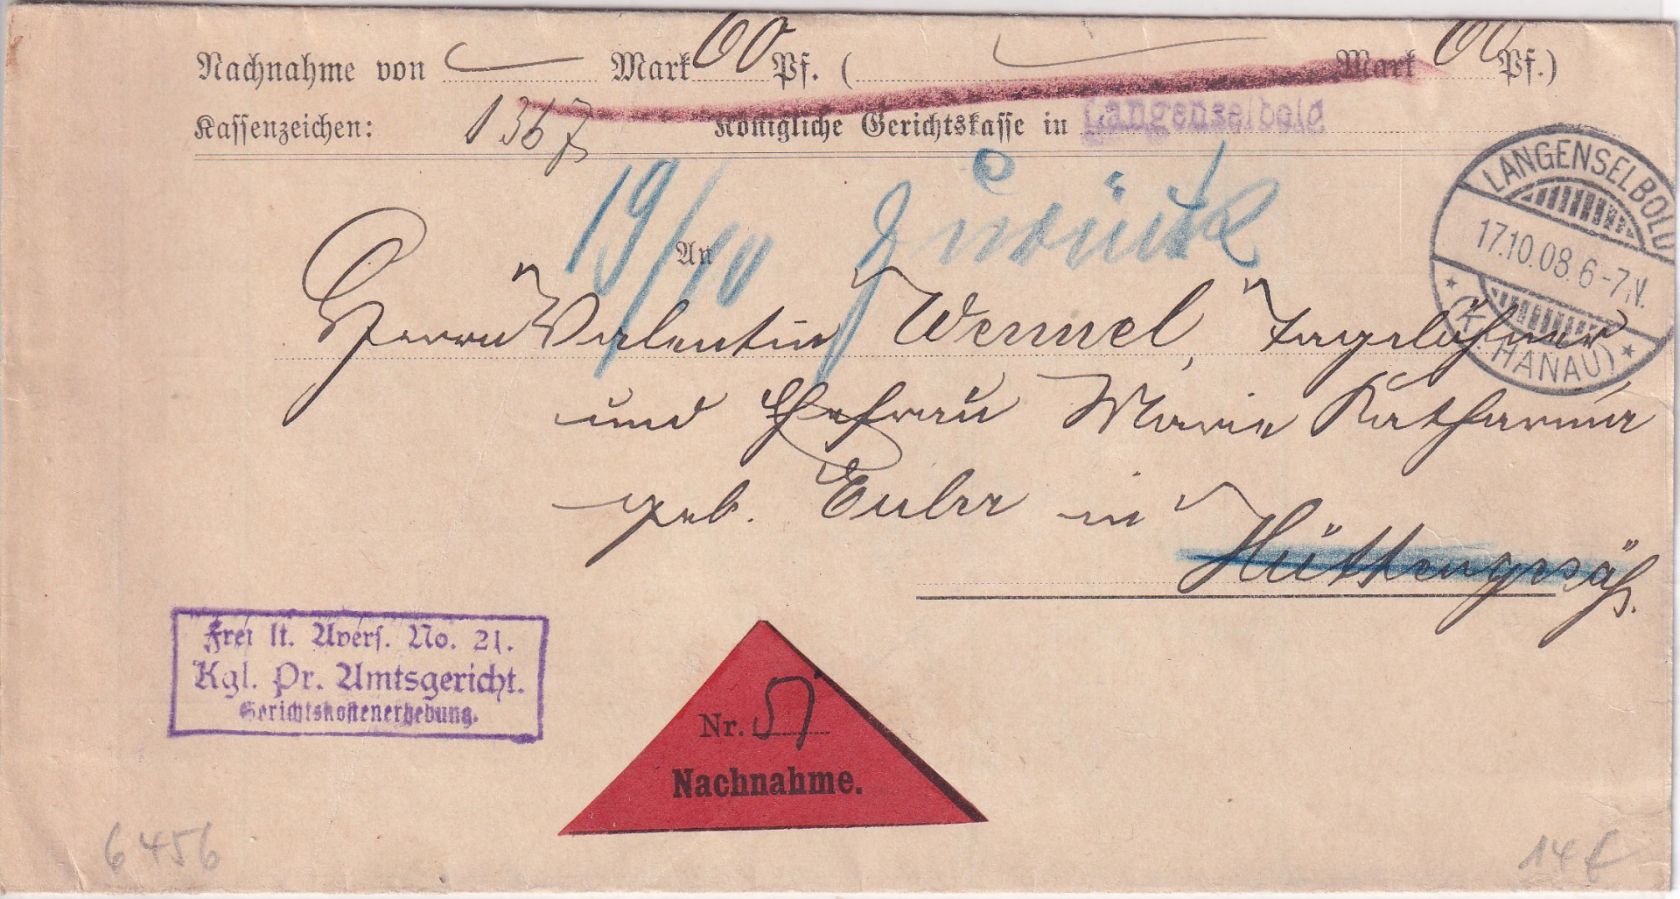 Nachnahme von — Mark 60 Pf. ( — Mark 60 Pf.)
Kassenzeichen: 1367 Königliche Gerichtskasse in Langenselbold
19/10 Zurück
LANGENSELBOLD
17.10.08.6-7N.
(KR. HANAU)
An
Herrn Valentin Wennel, Tagelöhner
und Ehefrau Marie Katharina
geb. Euler in
Hüttengesäß.
Frei lt. Avers. No. 21.
Kgl. Pr. Amtsgericht.
Gerichtskostenerhebung.
Nr.
Nachnahme.
6456
14